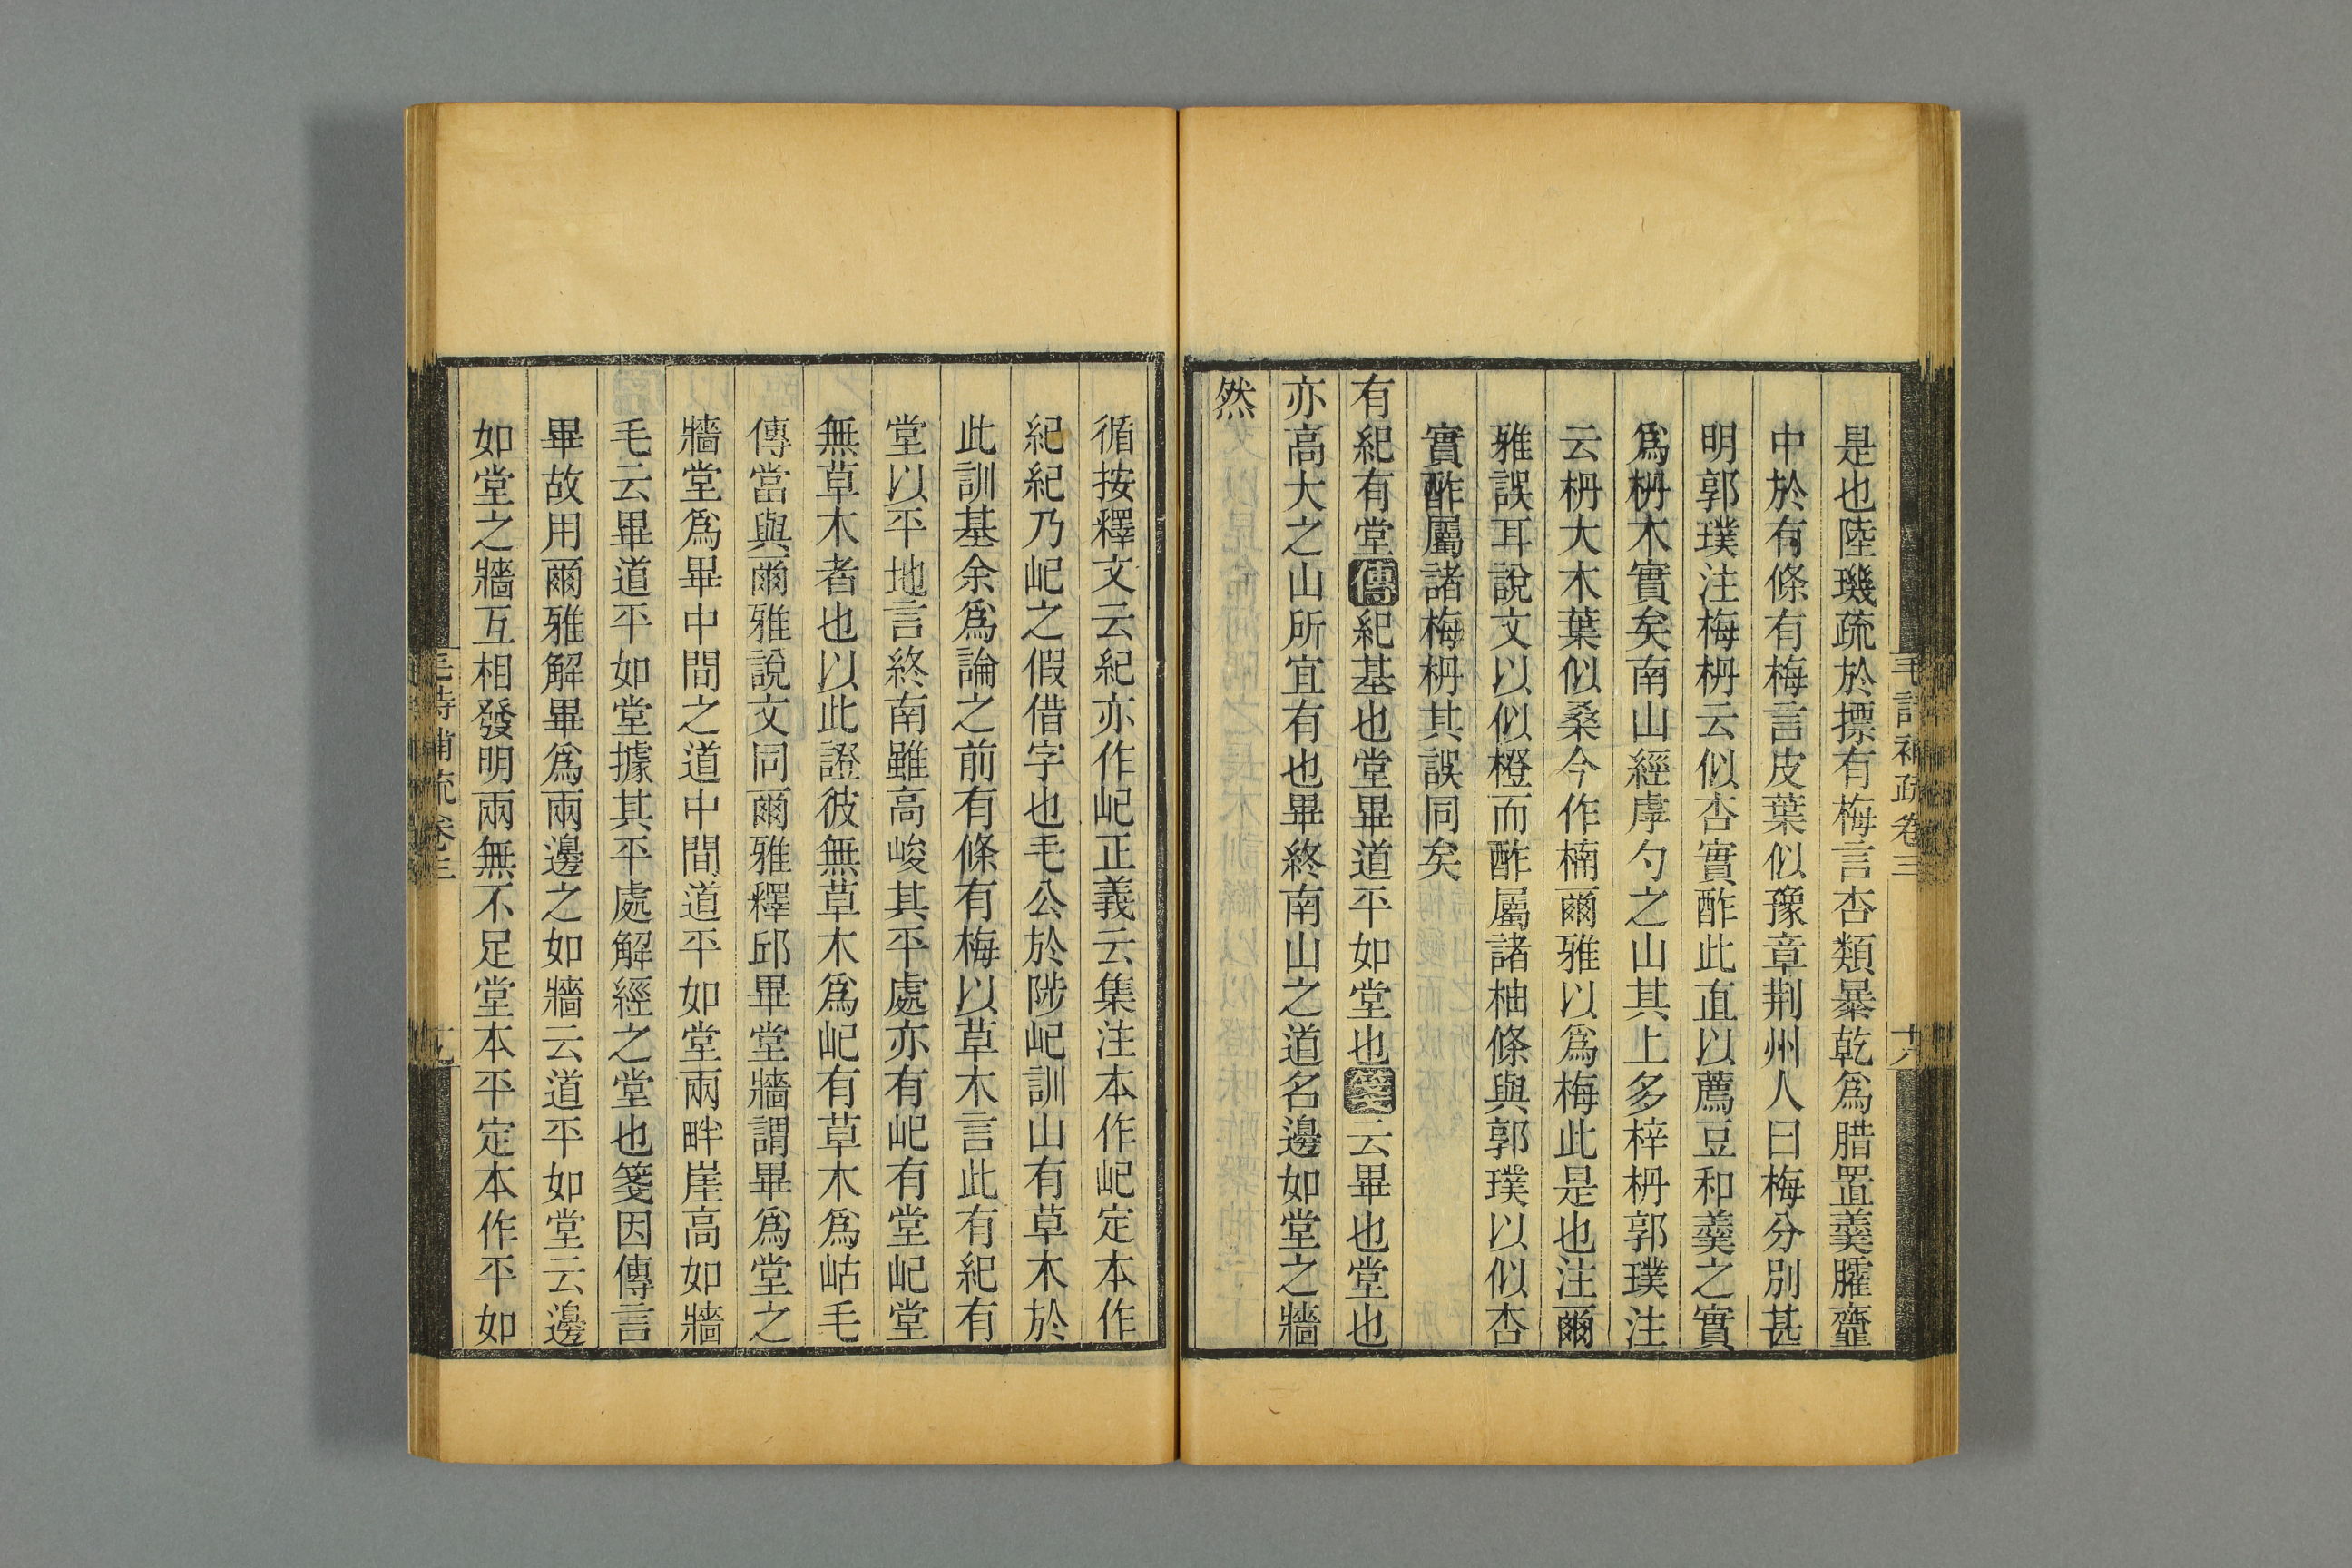 毛詩補疏卷三
十八
是也陸璣疏於摽有梅言杏類暴乾爲腊置羹臛虀
中於有條有梅言皮葉似豫章荆州人曰梅分別甚
明郭璞注梅枏云似杏實酢此直以薦豆和羹之實
爲枏木實矣南山經虖勺之山其上多梓枏郭璞注
云枏大木葉似桑今作楠爾雅以爲梅此是也注爾
雅誤耳說文以似橙而酢屬諸柚條與郭璞以似杏
實酢屬諸梅枏其誤同矣
有紀有堂傳紀基也堂畢道平如堂也箋云畢也堂也
亦高大之山所宜有也畢終南山之道名邊如堂之牆
然
循按釋文云紀亦作屺正義云集注本作屺定本作
紀紀乃屺之假借字也毛公於陟屺訓山有草木於
此訓基余爲論之前有條有梅以草木言此有紀有
堂以平地言終南雖高峻其平處亦有屺有堂屺堂
無草木者也以此證彼無草木爲屺有草木爲岵毛
傳當與爾雅說文同爾雅釋邱畢堂牆謂畢爲堂之
牆堂爲畢中間之道中間道平如堂兩畔崖高如牆
毛云畢道平如堂據其平處解經之堂也箋因傳言
畢故用爾雅解畢爲兩邊之如牆云道平如堂云邊
如堂之牆互相發明兩無不足堂本平定本作平如
毛詩補疏卷三